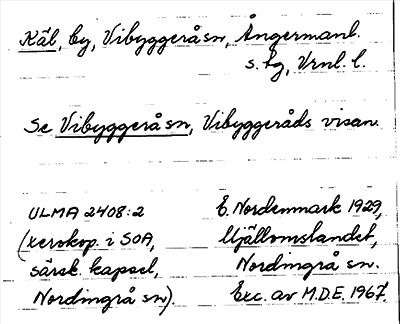 Käl, by, Vibyggerå sn, Ångermanl.
s. lg, Vrnl. l.
Se Vibyggerå sn, Vibyggeråds visan.
ULMA 2408:2
(xerokop. i SOA,
särsk. kapsel,
Nordingrå sn).
E. Nordenmark 1929,
Mjällomslandet,
Nordingrå sn.
Exc. av M.D.E. 1967.